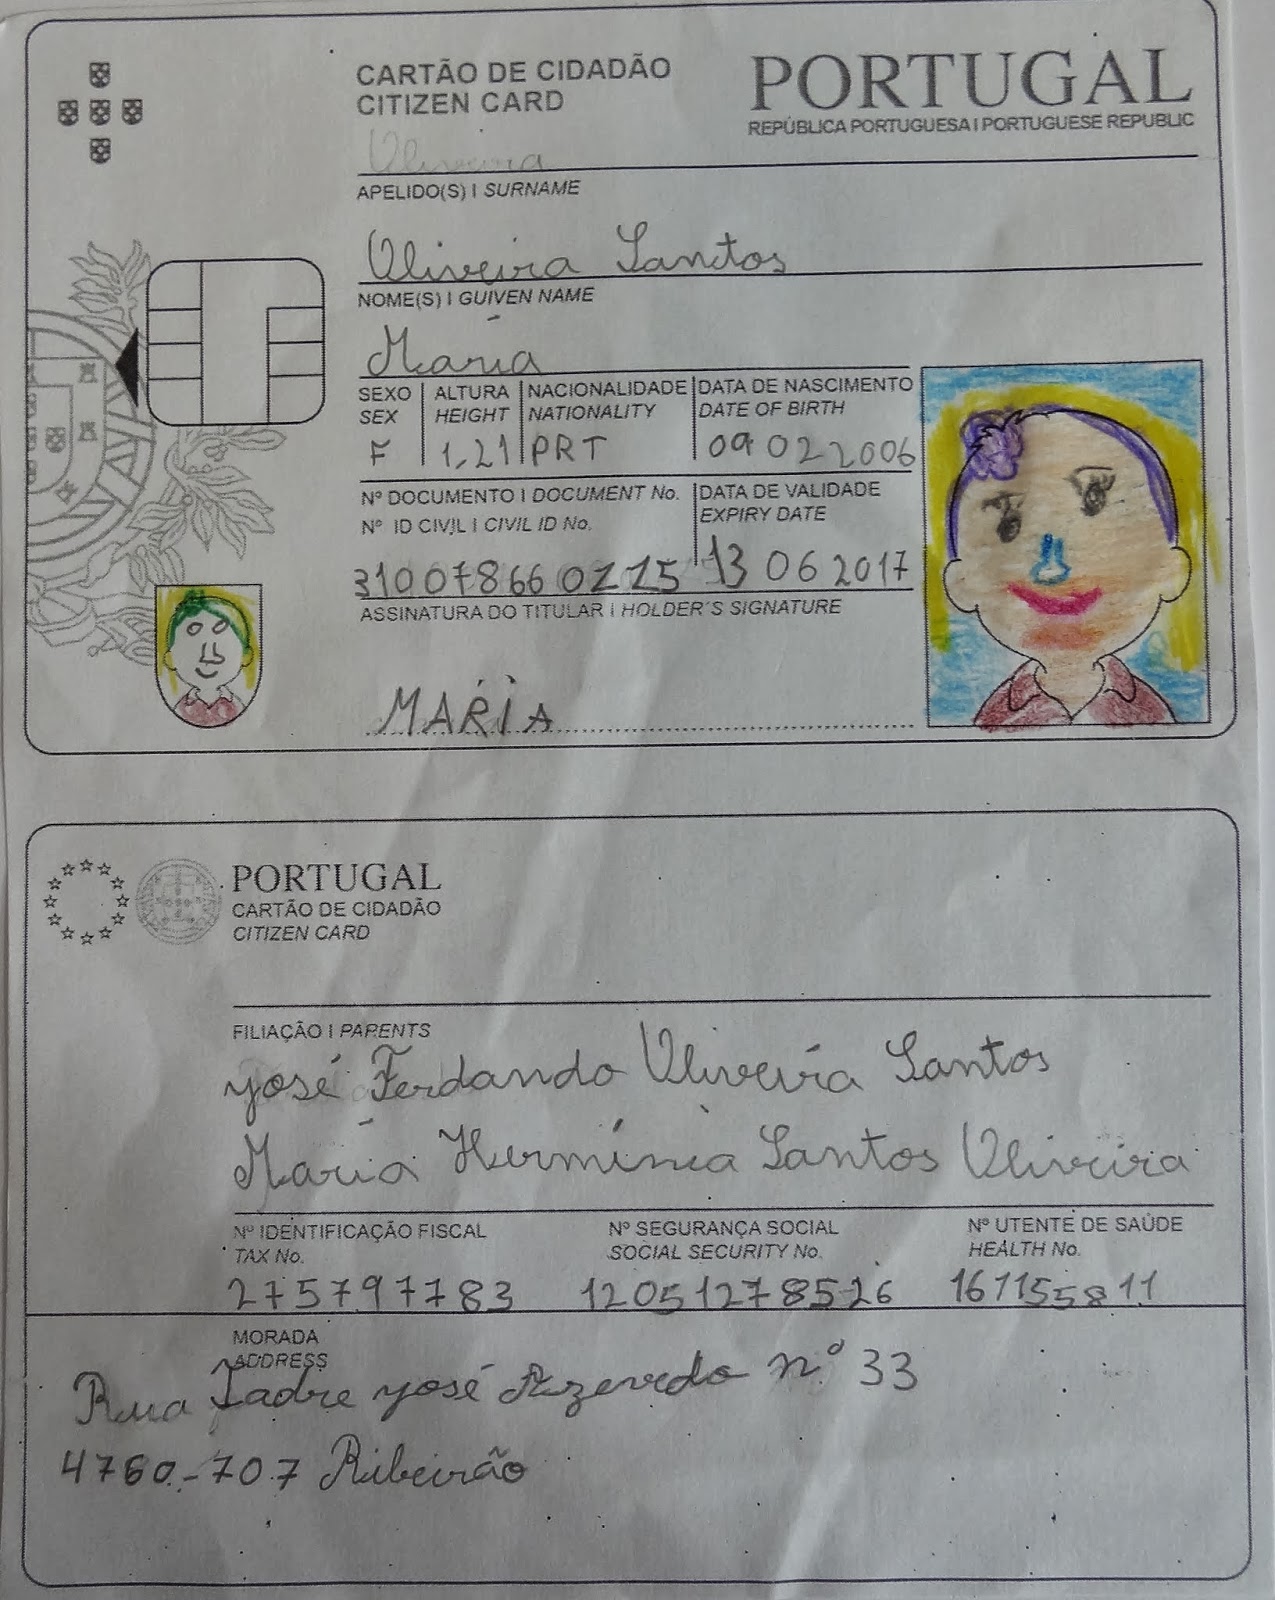 CARTÃO DE CIDADÃO
CITIZEN CARD
PORTUGAL
REPÚBLICA PORTUGUESA I PORTUGUESE REPUBLIC
Oliveira
APELIDO(S) I SURNAME
Oliveira Santos
NOME(S) I GUIVEN NAME
Maria
SEXO ALTURA NACIONALIDADE DATA DE NASCIMENTO
SEX HEIGHT NATIONALITY DATE OF BIRTH
F 1,21 PRT 09 02 2006
Nº DOCUMENTO I DOCUMENT No. DATA DE VALIDADE
Nº ID CIVIL I CIVIL ID No. EXPIRY DATE
310078660ZZ5 13 06 2017
ASSINATURA DO TITULAR I HOLDER´S SIGNATURE
MARIA
PORTUGAL
CARTÃO DE CIDADÃO
CITIZEN CARD
FILIAÇÃO I PARENTS
José Ferdando Oliveira Santos
Maria Hermínia Santos Oliveira
Nº IDENTIFICAÇÃO FISCAL Nº SEGURANÇA SOCIAL Nº UTENTE DE SAÚDE
TAX No. SOCIAL SECURITY No. HEALTH No.
275797783 12051278526 161155811
MORADA
ADDRESS
Rua Padre José Azevedo nº 33
4760-707 Ribeirão